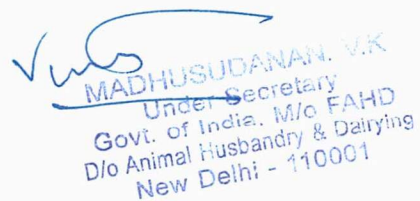 MADHUSUDANAN. V.K
Under Secretary
Govt. of India. M/o FAHD
D/o Animal Husbandry & Dairying
New Delhi - 110001